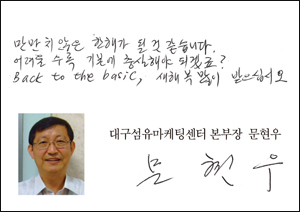 만만치 않은 한해가 될 것 같습니다.
어려울 수록 기본에 충실해야 되겠죠?
Back to the basic, 새해 복 많이 받으십시오
대구섬유마케팅센터 본부장 문현우
문 현 우